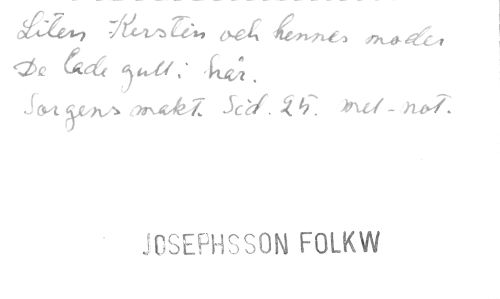 Liten Kerstin och hennes moder
De lade gull i hår.
Sorgens makt. Sid. 25. mel-not.
JOSEPHSSON FOLKW